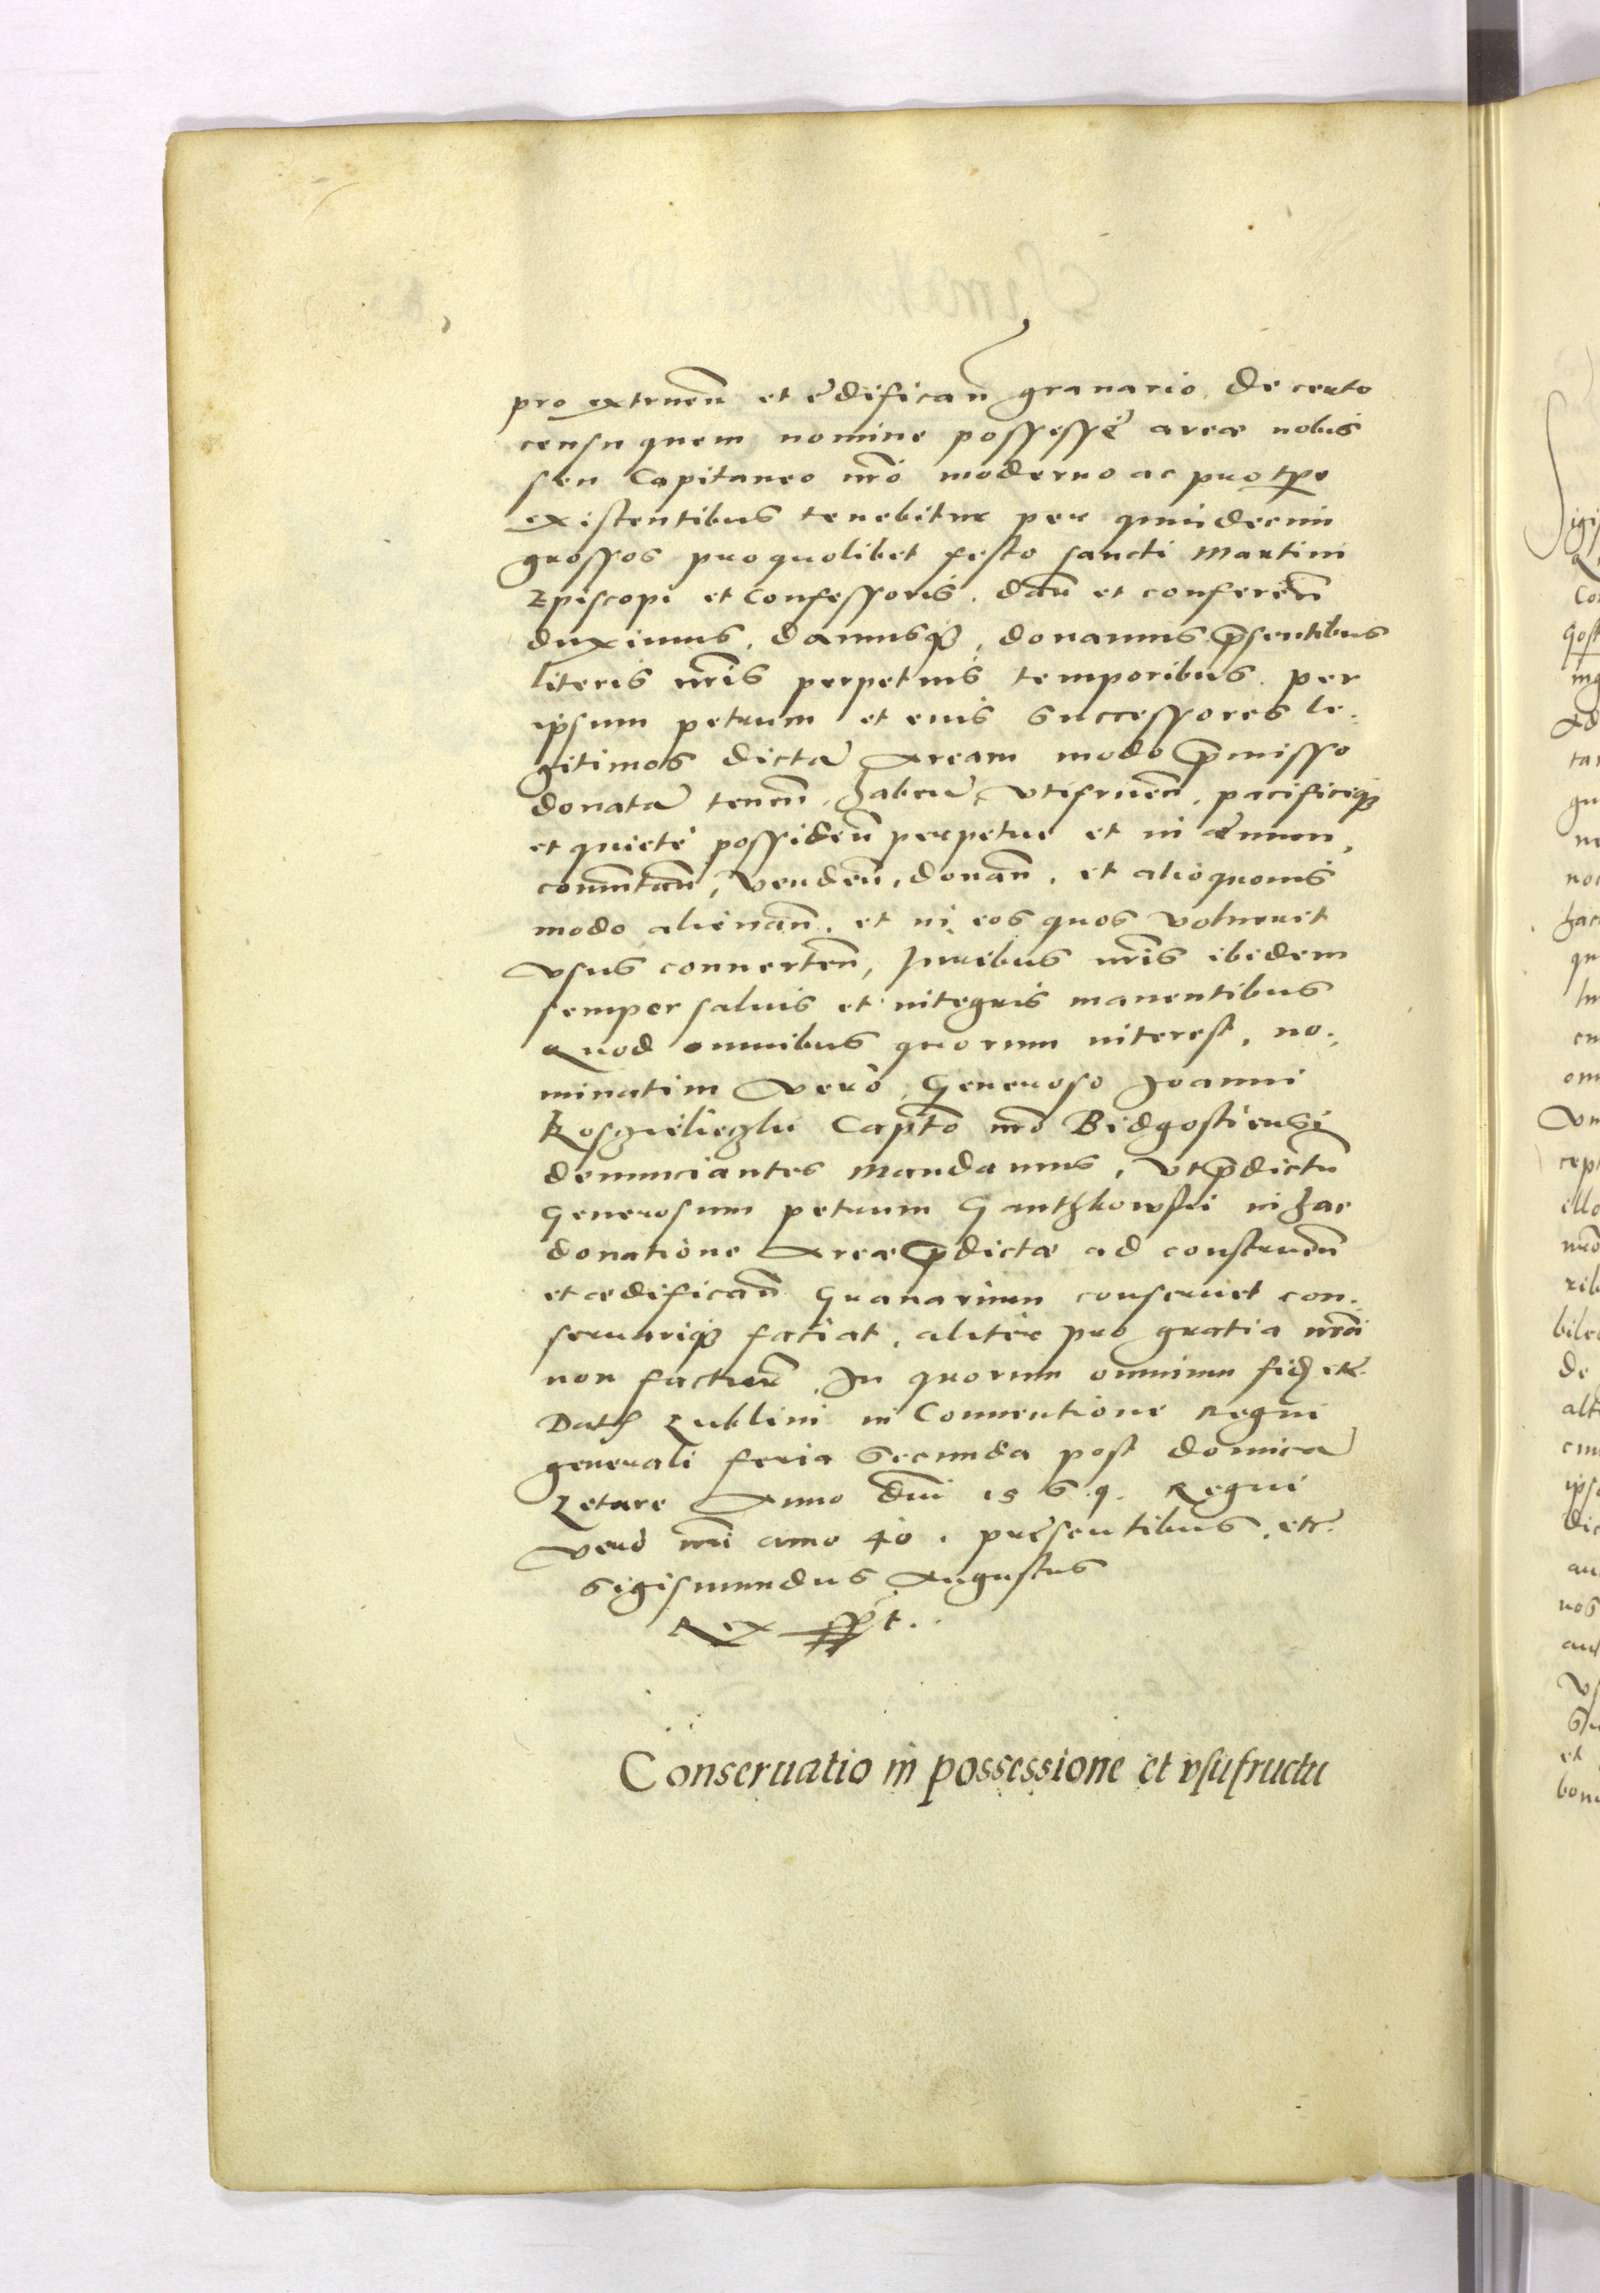 pro extruen̄ et edifican̄ granario. De certo
censu quem nomine possesse areæ nobis
seu Capitaneo nr̄o moderno ac pro tp̄e
existentibus tenebitur per quindecim
grossos pro quolibet festo sancti Martini
Episcopi et Confessoris. dan̄ et conferen̄
duximus. damusq́ꝫ, donamus p̄sentibus
literis nr̄is perpetuis temporibus. per
ipsum petrum et eius successores le-
gitimos dictā Aream modo p̄misso
donatā tenen̄, habeñ, vtifruen̄, pacificeqꝫ
et quietè possiden̄ perpetuo et in æuum,
comutan̄, venden̄, donan̄. et alio quouis
modo alienan̄. et in eos quos voluerit
vsus conuerten̄, Iuribus nr̄is ibidem
semper saluis et integris manentibus
Quod omnibus quorum interest, no-
minatim vero Generoso Joanni
Kosczielieczky Capt̄o nr̄o Bidgostiensi
denunciantes mandamus, vt p̄dictū
Generosum petrum Ganthkowski in hac
donatione Areæ p̄dictæ ad construen̄
et ædifican̄ Granarium conseruet con-
seruariqꝫ faciat, aliter pro gratia nr̄a
non factur̄. In quorum omnium fid etc.
Dat Lublini in Conuentione Regni
generali feria secunda post domicā
Letare Anno dni 1569. Regni
vero nr̄i anno 40. presentibus. etc.
Sigismundus Augustus
Rex sspt.
Conseruatio in possessione et vsufructu